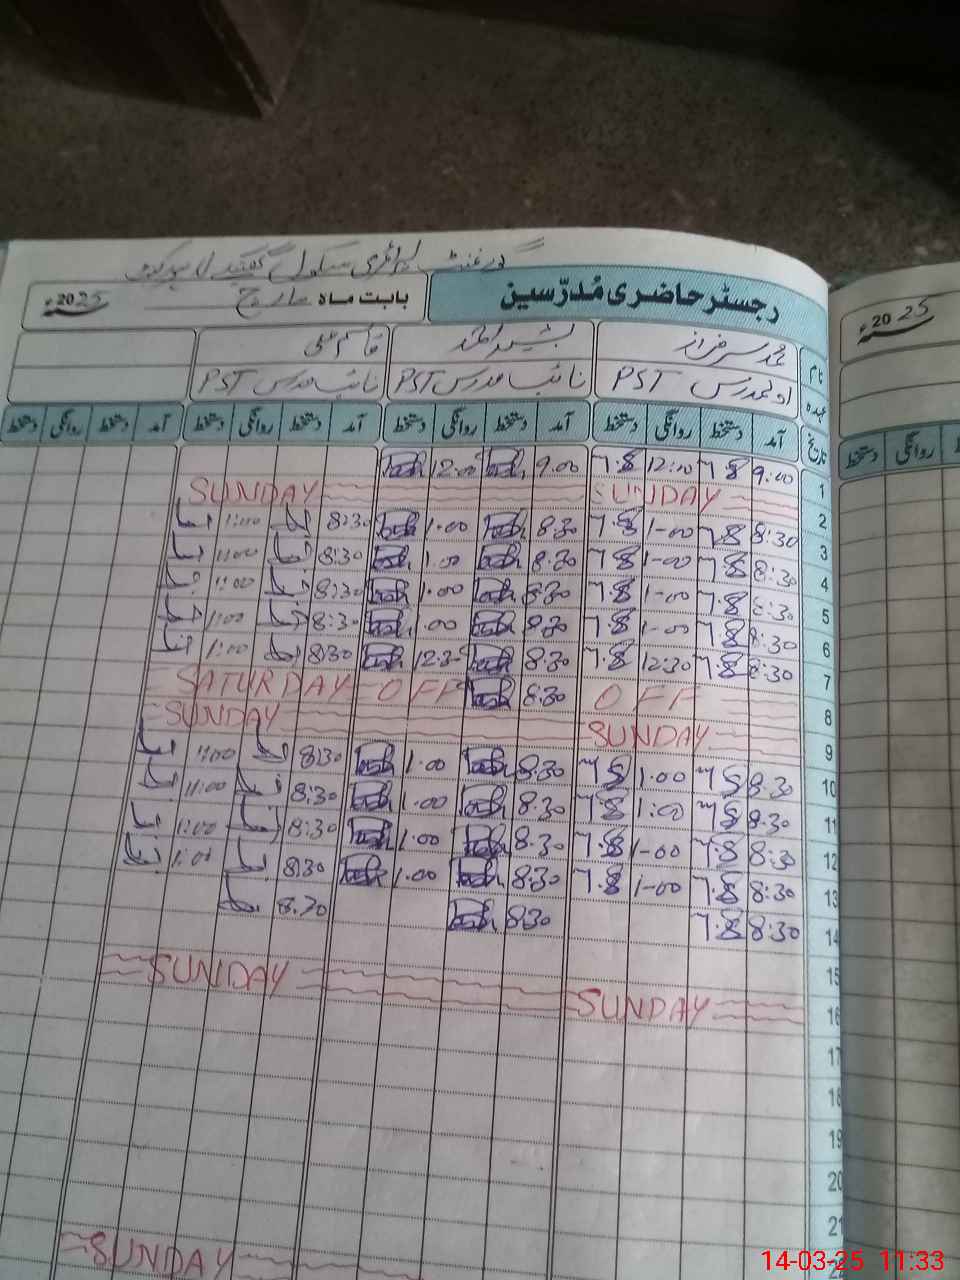 گورنمنٹ پرائمری سکول
رجسٹر حاضری مُدرّسین بابت ماہ مارچ 2025ء
2025ء
نام محمد سرفراز بشیر احمد قاسم علی
عہدہ اول مدرس PST نائب مدرس PST نائب مدرس PST
تاریخ آمد دستخط روانگی دستخط آمد دستخط روانگی دستخط آمد دستخط روانگی دستخط آمد دستخط روانگی دستخط
روانگی دستخط
1 9:00 12:00 9.00 12:00
2 SUNDAY SUNDAY
3 8:30 1-00 8.30 1.00 8:30 1:00
4 8:30 1-00 8.30 1.00 8:30 1:00
5 8:30 1-00 8.30 1.00 8:30 1:00
6 8:30 1-00 8.30 1.00 8:30 1:00
7 8:30 12:30 8.30 12:30 8:30 1:00
8 OFF 8:30 SATURDAY OFF
9 SUNDAY SUNDAY
10 8.30 1.00 8.30 1.00 8:30 1:00
11 8.30 1:00 8.30 1.00 8:30 11:00
12 8:30 1-00 8.30 1.00 8:30 1:00
13 8:30 1-00 8:30 1.00 8:30 1:00
14 8:30 8:30 8.30
15
16 SUNDAY SUNDAY
17
18
19
20
21
22
SUNDAY
14-03-25 11:33